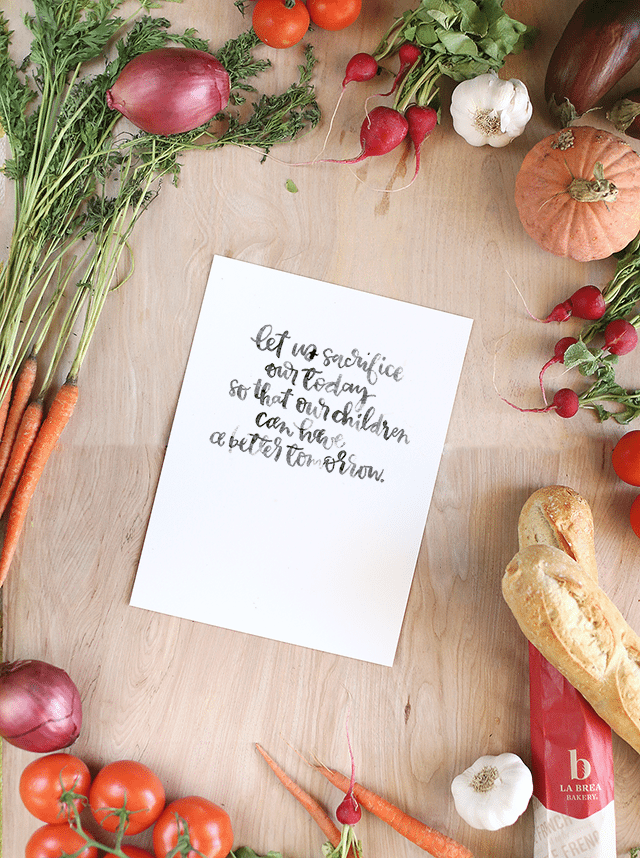 let us sacrifice
our today
so that our children
can have
a better tomorrow.
b
LA BREA
BAKERY.
FRENCH